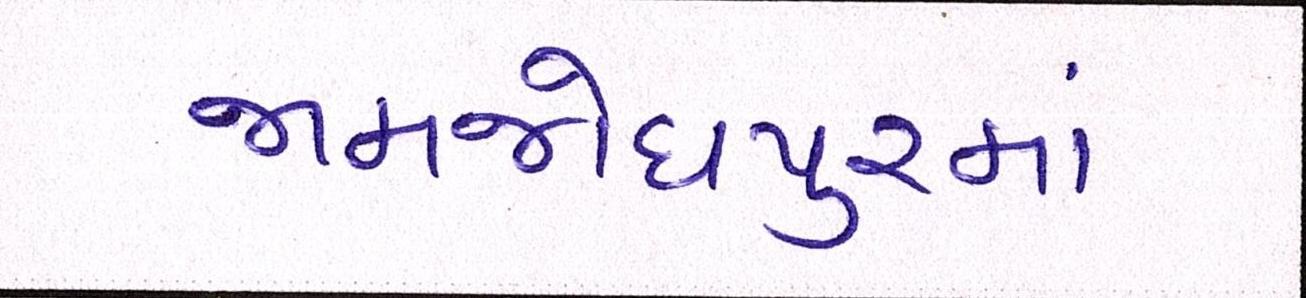 જામજોધપુરમાં